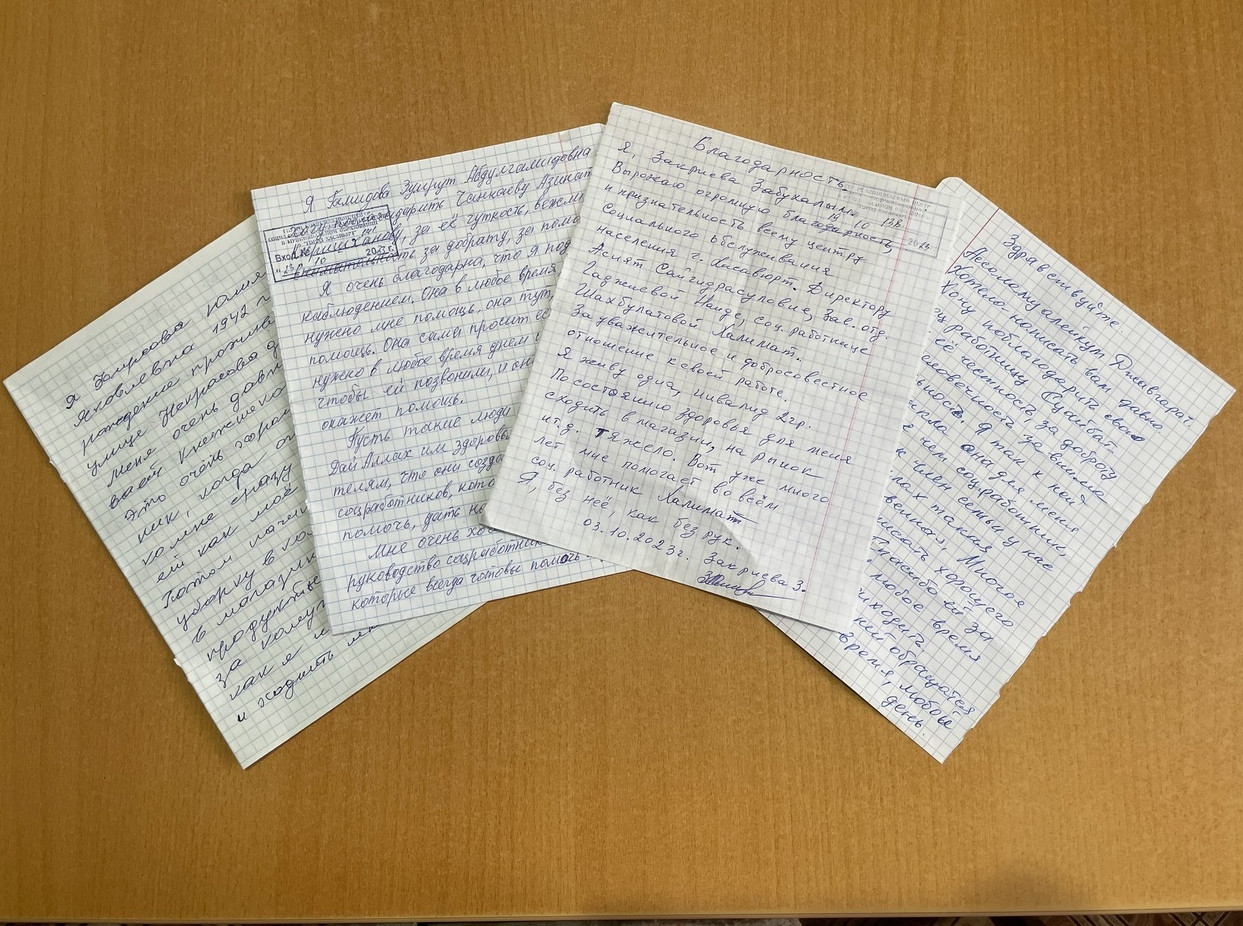 Я Хмурова Юлия
Яковлевна 1942 г.
рождения прожива
улице Некрасова д
меня очень давно
васй Книжеко
Это очень хоро
ник, когда
ко мне сразу
ей как моё
Потом начи
уборку в ко
в магазин
продукты
за комму
как я
и ходить
Я Гамидова Зумрут Абдулгамидовна
хочу поблагодарить Чанкаеву Азинат
за её чуткость, вежли
внимательность за доброту, за помо
Вход №
13 10 2023 г.
Я очень благодарна, что я под
наблюдением. Она в любое время
нужно мне помощь, она тут,
помощь. Она сама просит её
нужно в любое время днём и
чтобы ей позвонили, и она
окажет помощь.
Пусть такие люди
Дай Аллах им здоровья
телям, что они созда
соцработников, кото
помочь, дать
Мне очень хо
руководство соцработник
которые всегда готовы помочь
Благодарность.
Я, Закриева Забухалым
Выражаю огромную благодарность,
и признательность всему центру
Социального обслуживания
населения г. Хасавюрт. Директору
Аслят Сайгидрасуловне, Зав. отд.
Гаджиевой Наиде, соц. работнице
Шахбулатовой Халимат.
За уважительное и добросовестное
отношение к своей работе.
Я живу одна, инвалид 2 гр.
По состоянию здоровья для меня
сходить в магазин, на рынок
и т.д. тяжело. Вот уже много
лет мне помогает во всём
соц. работник Халимат
Я, без неё, как без рук.
03.10.2023 г. Закриева З.
Здравствуйте.
Ассаламуалейкум Джавгарат
Хотела написать вам давно
Хочу поблагодарить свою
соц работницу Суайбат
её честность, за доброту
человечность, за внима
ность. Я так к ней
кла она для меня
чем соцработник,
к член семьи у нас
нах такая
венная, Многое
писать хорошего
Спасибо ей за
любое время
иходить
ней обращаться
время, любой
день.